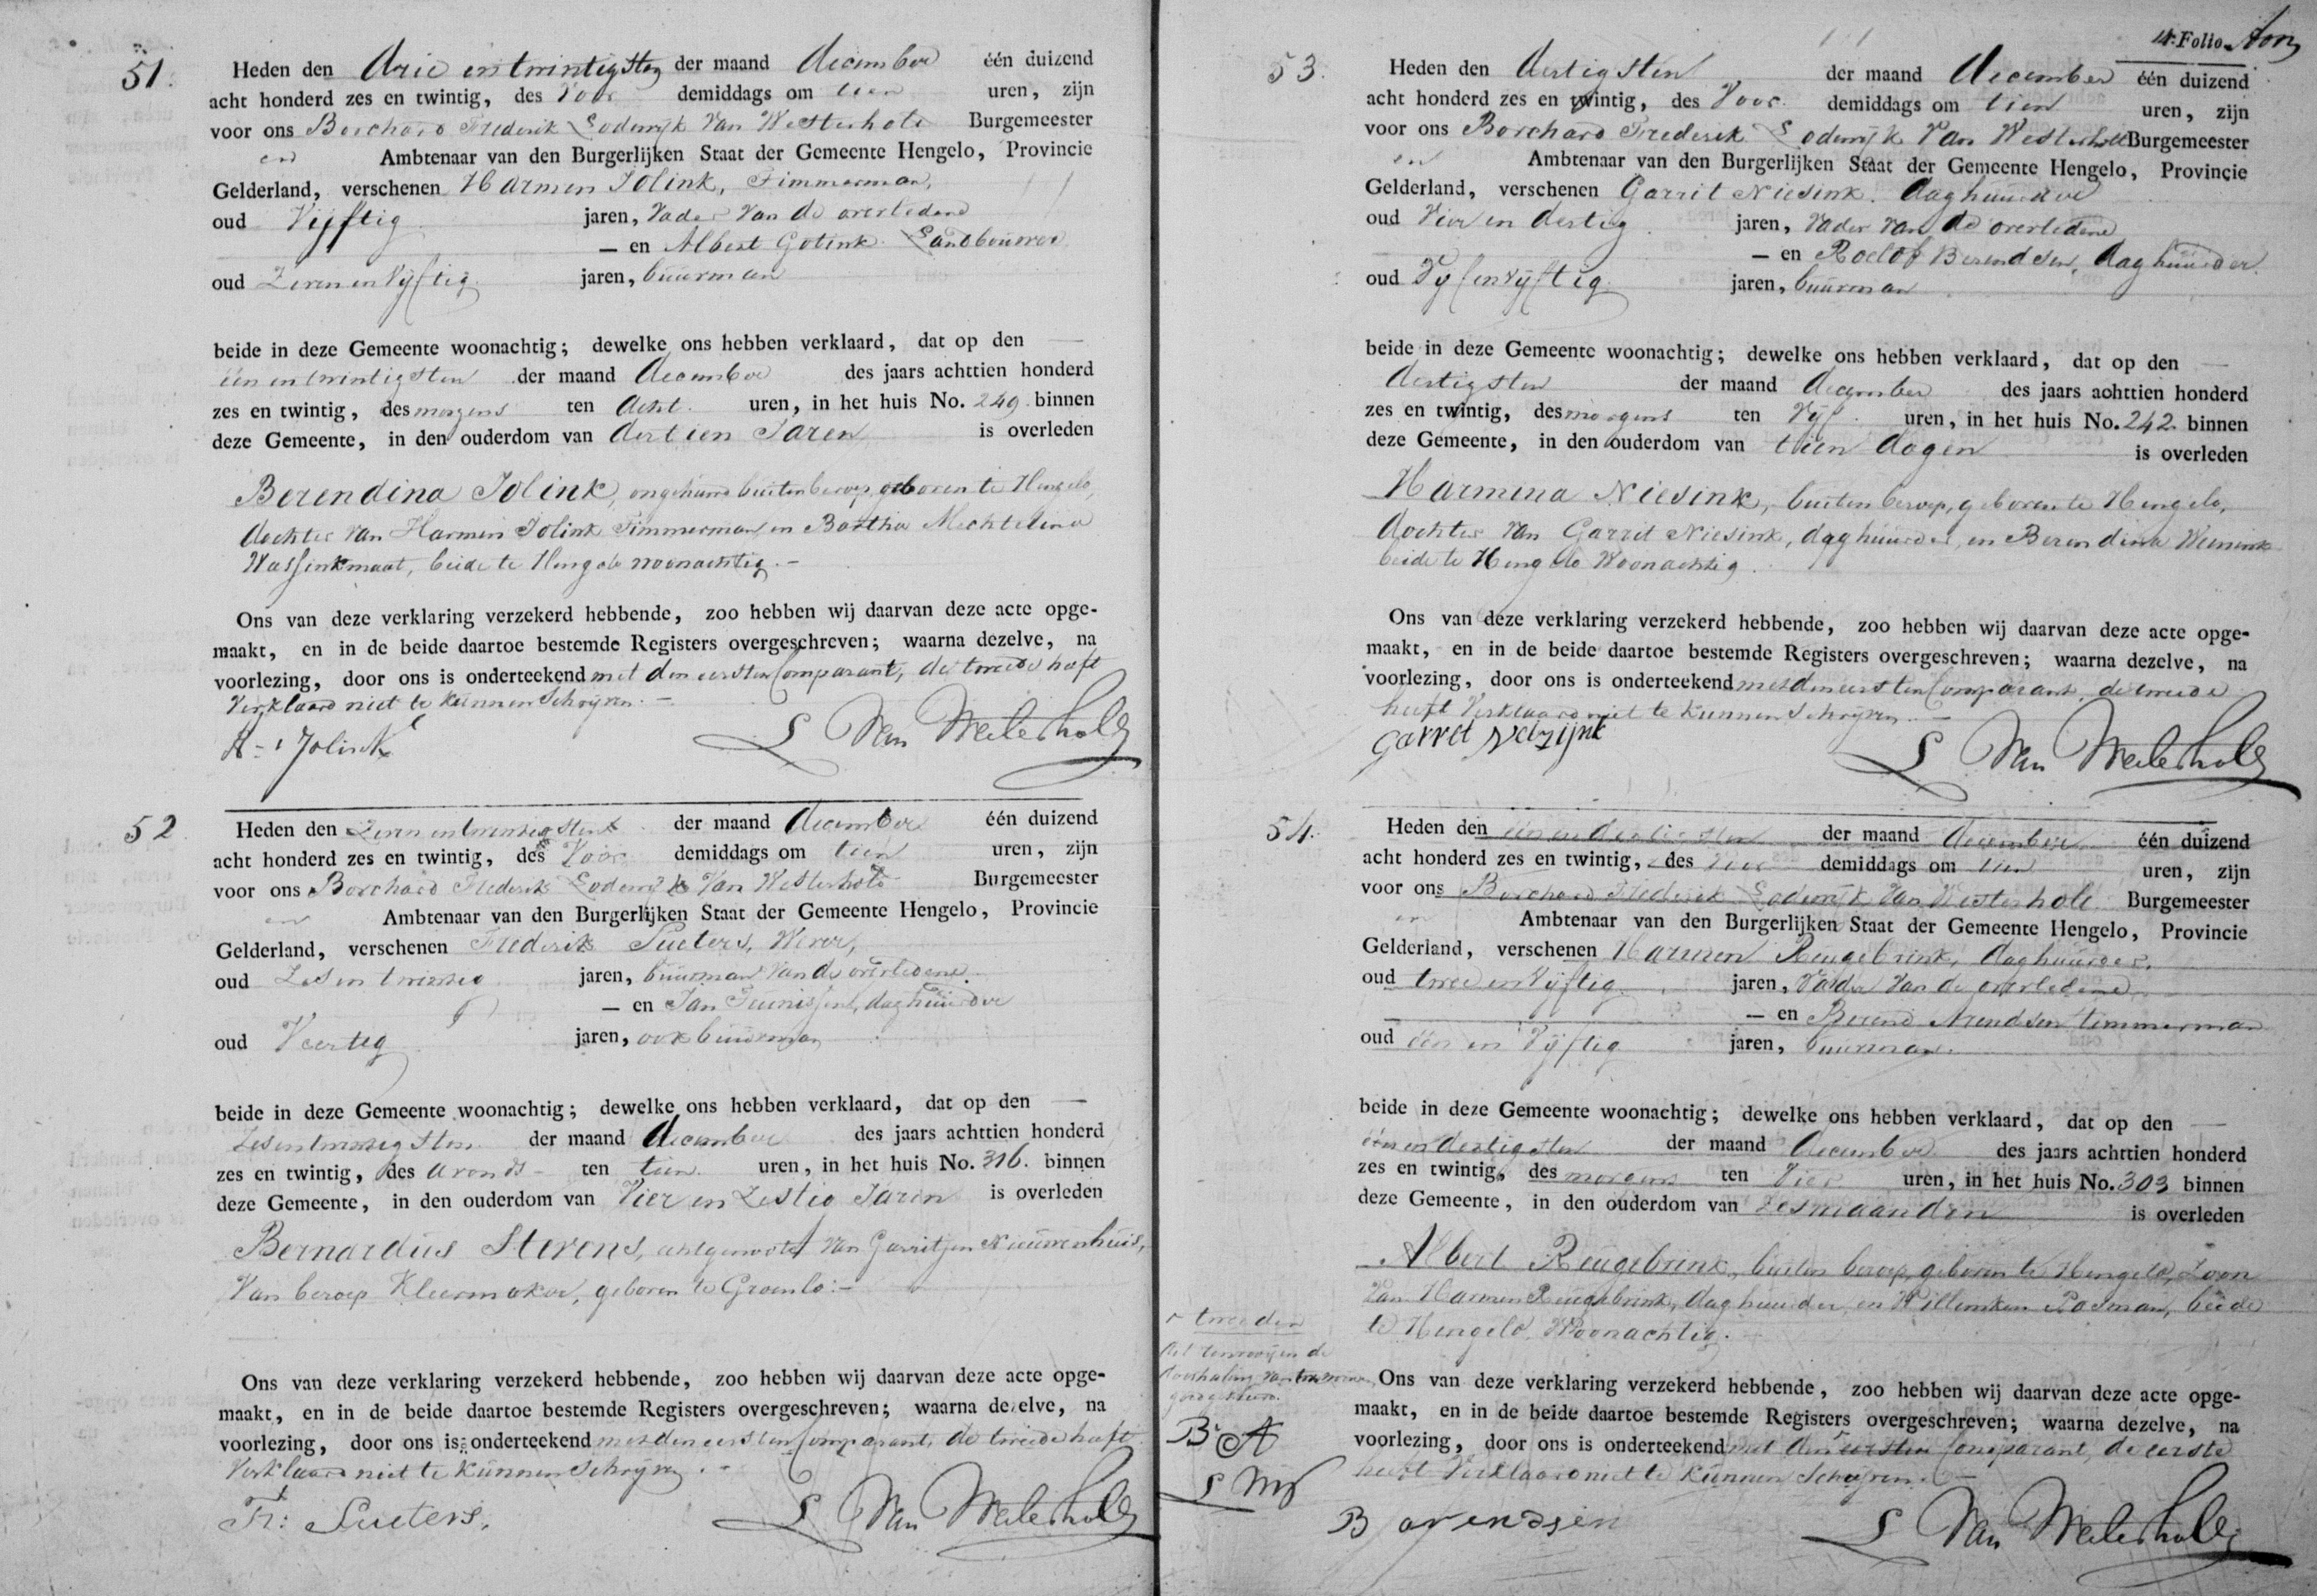 51.
Heden den drie en twintigsten der maand december één duizend
acht honderd zes en twintig, des Voor demiddags om tien uren, zijn
voor ons Borchard Frederik Lodewijk Van Westerholt Burgemeester
en Ambtenaar van den Burgerlijken Staat der Gemeente Hengelo, Provincie
Gelderland, verschenen Harmen Jolink, Timmerman,
oud Vijftig jaren, Vader Van de overledene
— en Albert Gotink Landbouwer
oud Zevenenvijftig jaren, buurman
beide in deze Gemeente woonachtig; dewelke ons hebben verklaard, dat op den —
één en twintigsten der maand december des jaars achttien honderd
zes en twintig, des morgens ten Acht uren, in het huis No. 249 binnen
deze Gemeente, in den ouderdom van dertien Jaren is overleden
Berendina Jolink, ongehuwd buiten beroep geboren te Hengelo,
dochter van Harmen Jolink Timmerman en Bartha Mechtelina
Wassinkmaat, beide te Hengelo woonachtig. –
Ons van deze verklaring verzekerd hebbende, zoo hebben wij daarvan deze acte opge-
maakt, en in de beide daartoe bestemde Registers overgeschreven; waarna dezelve, na
voorlezing, door ons is onderteekend met den eersten Comparant, de tweede heeft
Verklaard niet te kunnen Schrijven. –
H Jolink
L Van Westerholt
52
Heden den Zeven en twintigsten der maand december één duizend
acht honderd zes en twintig, des Voor demiddags om tien uren, zijn
voor ons Borchard Frederik Lodewijk Van Westerholt Burgemeester
en Ambtenaar van den Burgerlijken Staat der Gemeente Hengelo, Provincie
Gelderland, verschenen Frederik Sueters, Wever,
oud Zes en twintig jaren, buurman Van de overledene
— en Jan Teunissen, daghuurder
oud Veertig jaren, ook buurman
beide in deze Gemeente woonachtig; dewelke ons hebben verklaard, dat op den —
Zesentwintigsten der maand december des jaars achttien honderd
zes en twintig, des avonds ten tien uren, in het huis No. 316. binnen
deze Gemeente, in den ouderdom van Vier en Zestig Jaren is overleden
Bernardus Stevens, echtgenoot Van Garritjen Nieuwenhuis,
Van beroep Kleermaker, geboren te Groenlo: –
Ons van deze verklaring verzekerd hebbende, zoo hebben wij daarvan deze acte opge-
maakt, en in de beide daartoe bestemde Registers overgeschreven; waarna dezelve, na
voorlezing, door ons is onderteekend met den eersten Comparant, de tweede heeft
Verklaard niet te kunnen Schrijven. –
Fr: Sueters.
L Van Westerholt
4. Folio
53.
Heden den dertigsten der maand december één duizend
acht honderd zes en twintig, des Voor demiddags om tien uren, zijn
voor ons Borchard Frederik Lodewijk Van Westerholt Burgemeester
en Ambtenaar van den Burgerlijken Staat der Gemeente Hengelo, Provincie
Gelderland, verschenen Garrit Niesink. daghuurder
oud Vier en dertig jaren, Vader Van de overledene
— en Roelof Berendsen, daghuurder.
oud Vijfenvijftig jaren, buurman
beide in deze Gemeente woonachtig; dewelke ons hebben verklaard, dat op den —
dertigsten der maand december des jaars achttien honderd
zes en twintig, des morgens ten Vijf uren, in het huis No. 242 binnen
deze Gemeente, in den ouderdom van tien dagen is overleden
Harmina Niesink, buiten beroep, geboren te Hengelo,
dochter Van Garrit Niesink, daghuurder, en Berendina Wenink
beide te Hengelo Woonachtig.
Ons van deze verklaring verzekerd hebbende, zoo hebben wij daarvan deze acte opge-
maakt, en in de beide daartoe bestemde Registers overgeschreven; waarna dezelve, na
voorlezing, door ons is onderteekend met den eersten Comparant, de tweede
heeft Verklaard niet te kunnen Schrijven. –
garret Neizijnk
L Van Westerholt
54.
Heden den één en dertigsten der maand december één duizend
acht honderd zes en twintig, des voor demiddags om tien uren, zijn
voor ons Borchard Frederik Lodewijk Van Westerholt Burgemeester
en Ambtenaar van den Burgerlijken Staat der Gemeente Hengelo, Provincie
Gelderland, verschenen Harmen Reugebrink, daghuurder,
oud twee en Vijftig jaren, Vader Van de overledene
— en Berend Arendsen timmerman
oud één en Vijftig jaren, buurman.
beide in deze Gemeente woonachtig; dewelke ons hebben verklaard, dat op den —
één en dertigsten der maand december des jaars achttien honderd
zes en twintig, des morgens ten Vier uren, in het huis No. 303 binnen
deze Gemeente, in den ouderdom van zes maanden is overleden
Albert Reugebrink, buiten beroep, geboren te Hengelo, Zoon
Van Harmen Reugebrink, daghuurder, en Willemken Rosman, beide
te Hengelo, Woonachtig.
r tweeden
doorhaling van
B A
L W
Ons van deze verklaring verzekerd hebbende, zoo hebben wij daarvan deze acte opge-
maakt, en in de beide daartoe bestemde Registers overgeschreven; waarna dezelve, na
voorlezing, door ons is onderteekend met den r eersten Comparant, de eerste
heeft Verklaard niet te kunnen Schrijven. –
B arendsen
L Van Westerholt